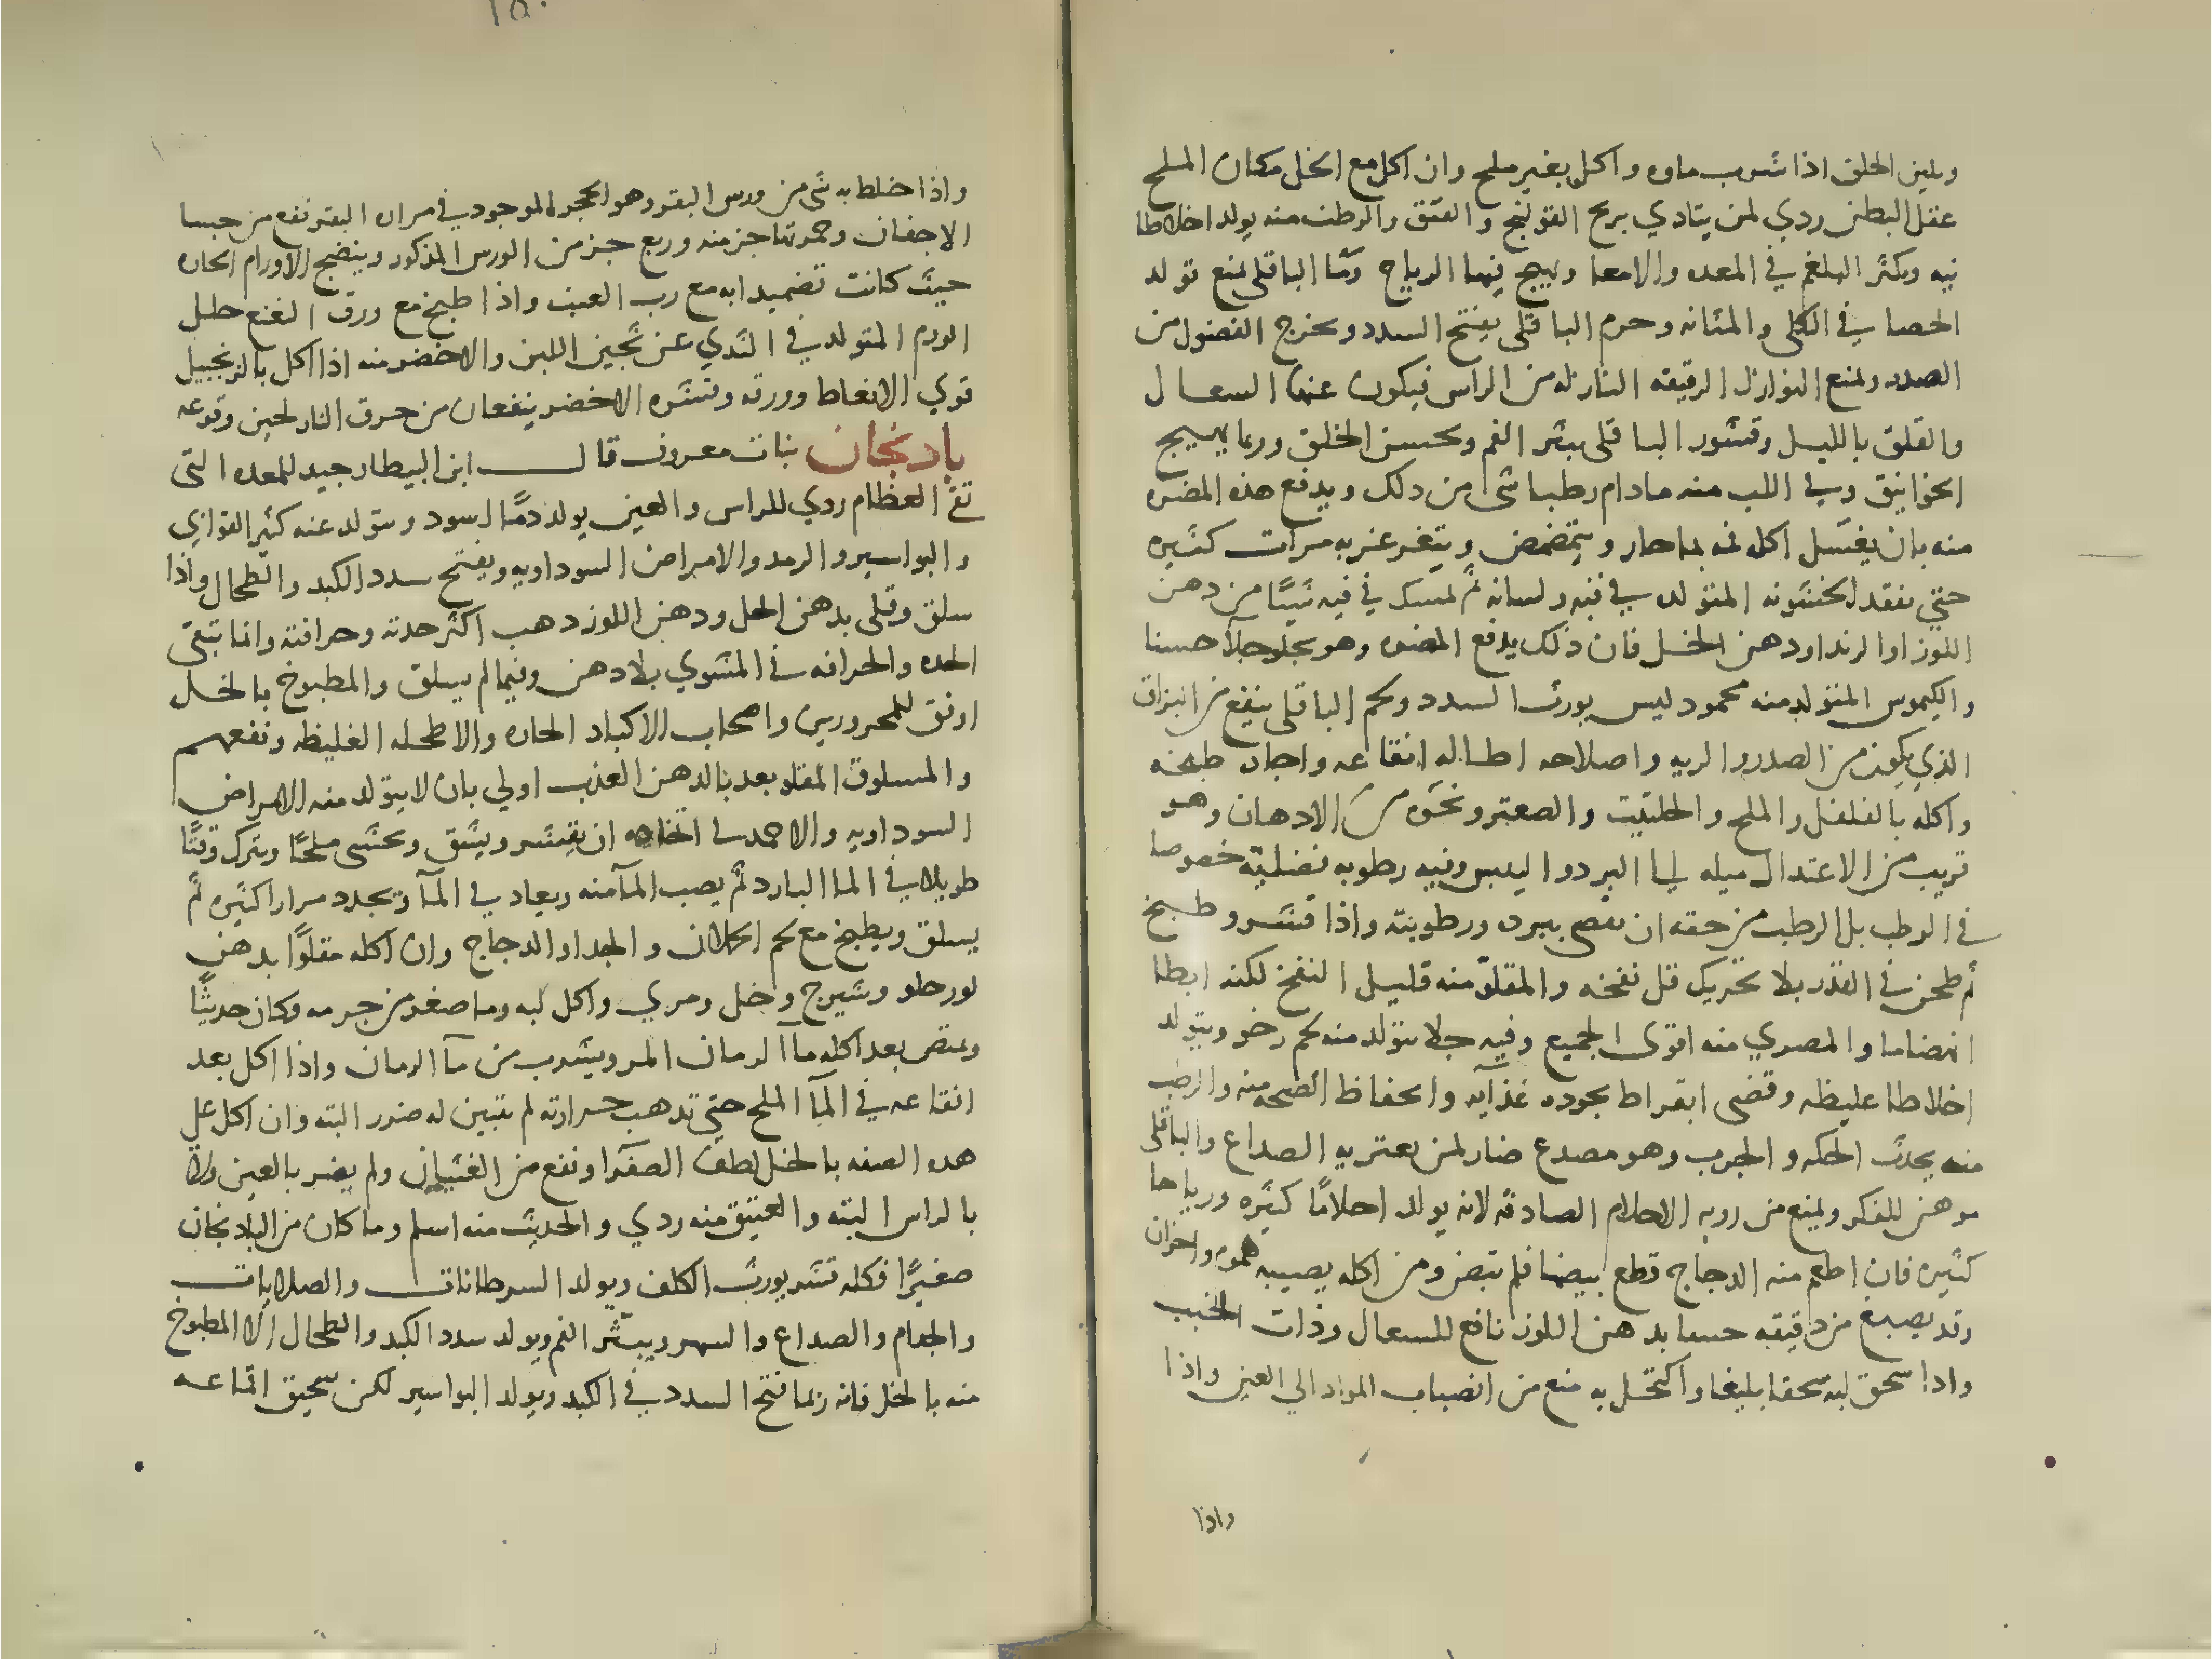 ويلين الحلق اذا شرب ماوه واكل بغير ملح وان اكل مع الخل مكان الملح
عقل البطن ردي لمن يتادي بريح القولنج والعتق والرطب منه يولد اخلاطا
نيه ويكثر البلغم في المعده والامعا ويهيج فيها الرياح وما الباقلى يمنع تولد
الحصا في الكلى والمثانه وجرم الباقلى يفتح السدد ويخرج الفضول من
الصدر ويمنع النوازل الرقيقه النازله من الراس فيكون عنها السعال
والقلق بالليل وقشور الباقلى يبثر الفم ويخشن الحلق وربما يهيج
الخوانيق وفي اللب منه مادام رطبا شى من دلك ويدفع هذه المضره
منه بان يغسل اكله فمه بما حار ويتمضمض ويتغرغر به مرات كثيره
حتي يفقد الخشونه المتولده في فيه ولسانه ثم يمسك في فيه شيئا من دهن
اللوز او الزبد او دهن الخل فان ذلك يدفع المضره وهو يجلو جلآ حسنا
والكيموس المتولد منه محمود ليس يورث السدد ولحم الباقلى ينفع من البزاق
الذي يكون من الصدر والريه واصلاحه اطاله انقاعه واجاده طبخه
واكله بالفلفل والملح والحلتيت والصعتر ونحوه من الادهان وهو
قريب من الاعتدال ميله الى البرد واليبس وفيه رطوبه فضليه خصوصا
في الرطب بل الرطب من حقه ان يقضي ببرده ورطوبته واذا قشر وطبخ
ثم طحن في القدر بلا تحريك قل نفخه والمقلو منه قليل النفخ لكنه ابطا
انهضاما والمصري منه اقوى الجميع وفيه جلا يتولد منه لحم رخو ويتولد
اخلاطا غليظه وقضى ابقراط بجوده غذآيه وانحفاظ الصحه منه والرطب
منه يحدث الحكه والجرب وهو مصدع ضار لمن يعتريه الصداع والباقلى
موهن للفكر ويمنع من رويه الاحلام الصادقه لانه يولد احلامًا كثيره ورياحا
كثيره فان اطعم منه الدجاج قطع بيضها فلم تبض ومن اكله يصيبه هموم واحزان
وقد يصنع من دقيقه حسا بدهن اللوز نافع للسعال وذات الجنب
واذا سحق لبه سحقا بليغا واكتحل به منع من انصباب المواد الي العين واذا
واذا
١٥٠
واذا خلط به شى من ورس البقر وهو الحجر الموجود في مراره البقر نفع من جسا
الاجفان وحمرتها جز منه وربع جز من الورس المذكور وينضج الاورام الحاره
حيث كانت تضميدا به مع رب العنب واذا طبخ مع ورق النعنع حلل
الورم المتولد في الثدي عن تجبن اللبن والاخضر منه اذا اكل بالزنجبيل
قوي الانعاظ وورقه وقشره الاخضر ينفعان من حرق النار لحين وقوعه
باذنجان نبات معروف قال ابن البيطار جيد للمعده التي
تقي العظام ردي للراس والعين يولد دمًا اسود ويتولد عنه كثير القوابي
والبواسير والرمد والامراض السوداويه ويفتح سدد الكبد والطحال واذا
سلق وقلي بدهن الخل ودهن اللوز دهب اكثر حدته وحرافته وانما تبقى
الحده والحرافه في المشوي بلا دهن وفيما لم يسلق والمطبوخ بالخل
اوفق للمحرورين واصحاب الاكباد الحاره والاطحله الغليظه ونفعهم
والمسلوق المقلو بعد بالدهن العذب اولي بان لا يتولد منه الامراض
السوداويه والاحمد في اتخاده ان يقشر ويشق ويحشى ملحًا ويترك وقتًا
طويلا في الما البارد ثم يصب المآ منه ويعاد في المآ ويجدد مرارا كثيره ثم
يسلق ويطبخ مع لحم الحملان والجدا والدجاج وان اكله مقلوًا بدهن
لوز حلو وشيرج وخل ومري واكل لبه وما صغر من جرمه وكان حديثًا
ويمتص بعد اكله مآ الرمان المر ويشرب من مآ الرمان واذا اكل بعد
انقاعه في المآ الملح حتي تدهب حرارته لم تتبين له ضرر البته وان اكل على
هده الصفه بالخل لطف الصفرا ونفع من الغثيان ولم يضر بالعين ولا
بالراس البته والعتيق منه ردي والحديث منه اسلم وما كان من الباذنجان
صغيرًا فكله قشر يورث الكلف ويولد السرطانات والصلابات
والجذام والصداع والسهر ويبثر الفم ويولد سدد الكبد والطحال الا المطبوخ
منه بالخل فانه ربما فتح السدد في الكبد ويولد البواسير لكن سحيق اقماعه